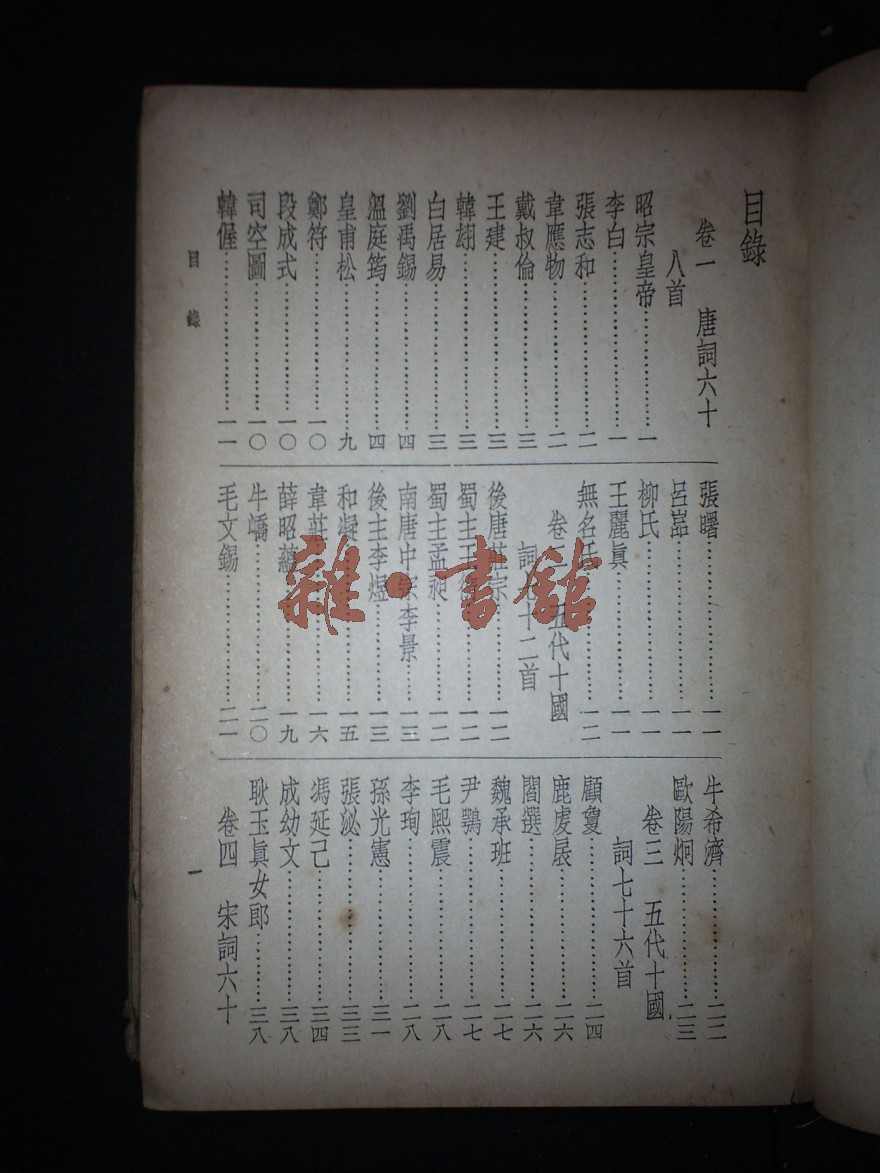 目錄
卷一　唐詞六十
八首
昭宗皇帝…………一
李白…………一
張志和…………二
韋應物…………二
戴叔倫…………三
王建…………三
韓翃…………三
白居易…………三
劉禹錫…………四
溫庭筠…………四
皇甫松…………九
鄭符…………一〇
段成式…………一〇
司空圖…………一〇
韓偓…………一一
張曙…………一一
呂嵒…………一一
柳氏…………一一
王麗眞…………一一
無名氏…………一二
卷　五代十國
詞　十二首
後唐莊宗…………一二
蜀主王　…………一二
蜀主孟昶…………一二
南唐中宗李景…………一三
後主李煜…………一三
和凝…………一五
韋莊…………一六
薛昭蘊…………一九
牛嶠…………二〇
毛文錫…………二一
牛希濟…………二二
歐陽炯…………二三
卷三　五代十國
詞七十六首
顧敻…………二四
鹿虔扆…………二六
閻選…………二六
魏承班…………二七
尹鶚…………二七
毛熙震…………二八
李珣…………二八
孫光憲…………三一
張泌…………三三
馮延己…………三四
成幼文…………三八
耿玉眞女郎…………三八
卷四　宋詞六十
目錄
一
雜·書舘